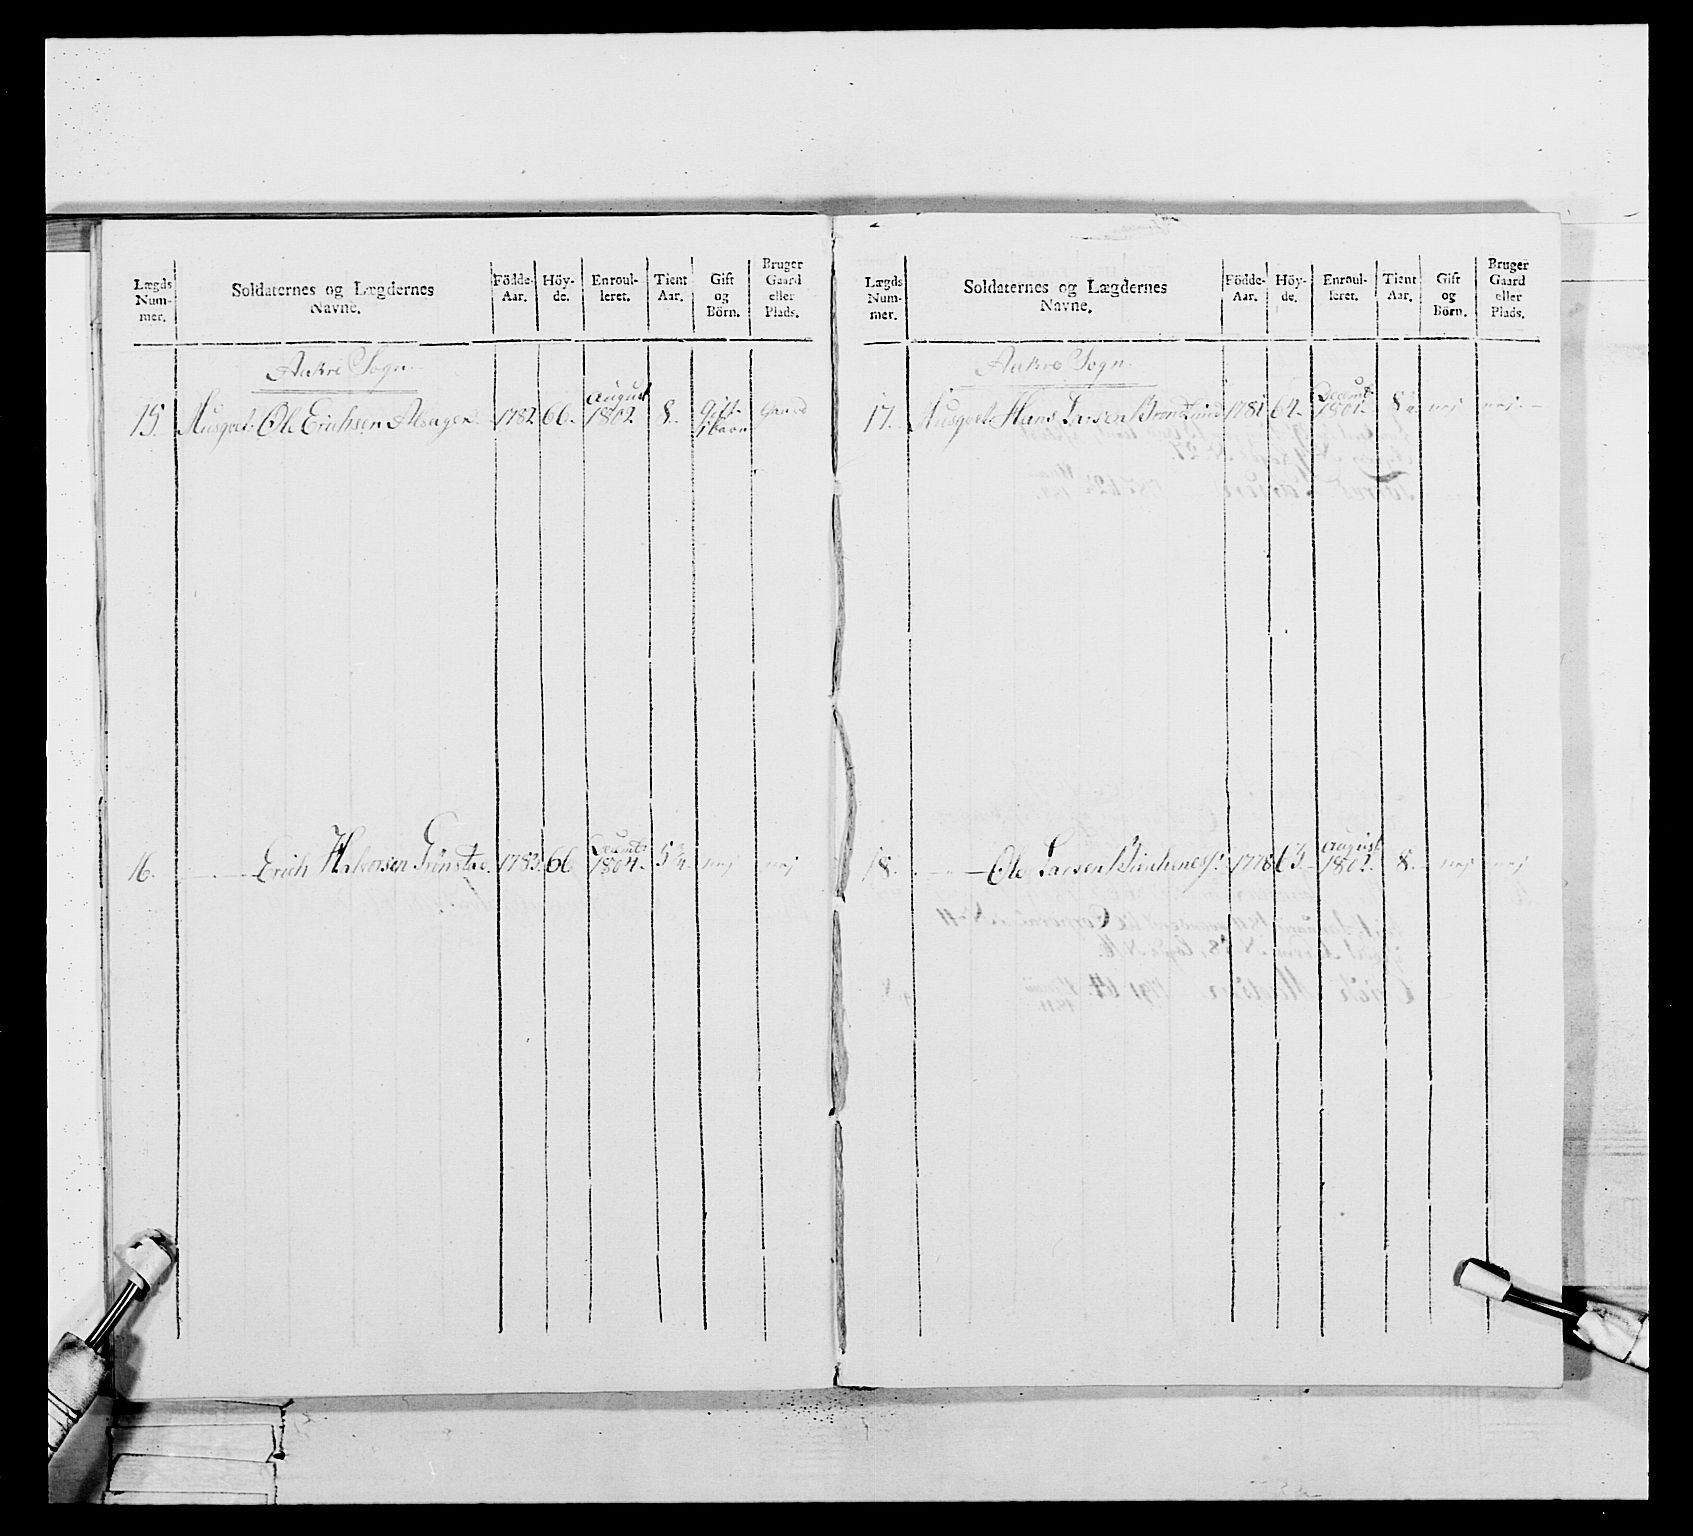 Lægds Num- mer.
Soldaternes og Lægdernes Navne.
Födde- Aar.
Höy- de.
Enroul- leret.
Tient Aar.
Gift og Börn.
Bruger Gaard eller Plads.
Aakre Sogn.
15. Musqvet. Ole Erichsen Alsager. 1782. 66. August 1802 8. Gift 1 barn Gaard
16. Erich Hakorsen 1783. 66. Decembr 1804. 5 3/4 nej nej
Lægds Num- mer.
Soldaternes og Lægdernes Navne.
Födde- Aar.
Höy- de.
Enroul- leret.
Tient Aar.
Gift og Börn.
Bruger Gaard eller Plads.
Aakre Sogn.
17. Musqvet. Hans Larsen 1781 64. Decemb. 1801. 8 nej nej
18. Ole Larsen 1778 63 August 1802. 8. nej nej